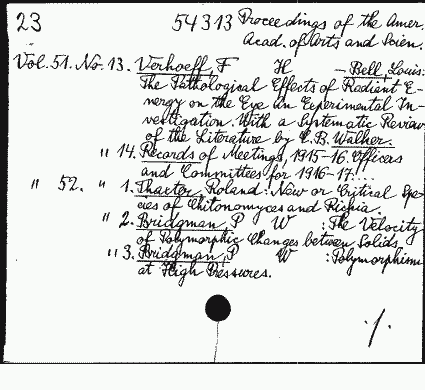 23 54313 Proceedings of the Amer.
Acad. of Arts and Scien.
Vol. 51. No. 13. Verhoeff, F H - Bell, Louis:
The Pathological Effects of Radiant E-
nergy on the Eye an Experimental In-
vestigation. With a Systematic Review
of the Literature by C. B. Walker.
" 14. Records of Meetings, 1915-16. Officers
and Committees for 1916-17...
" 52. " 1. Thaxter, Roland: New or Critical Spe-
cies of Chitonomyces and Rickia.
" 2. Bridgman, P W : The Velocity
of Polymorphic Changes between Solids.
" 3. Bridgman, P W : Polymorphism
at High Pressures.
./.